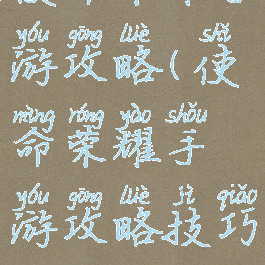 yóu gōng lüè shǐ
游攻略(使
mìng róng yào shǒu
命荣耀手
yóu gōng lüè jì qiǎo
游攻略技巧